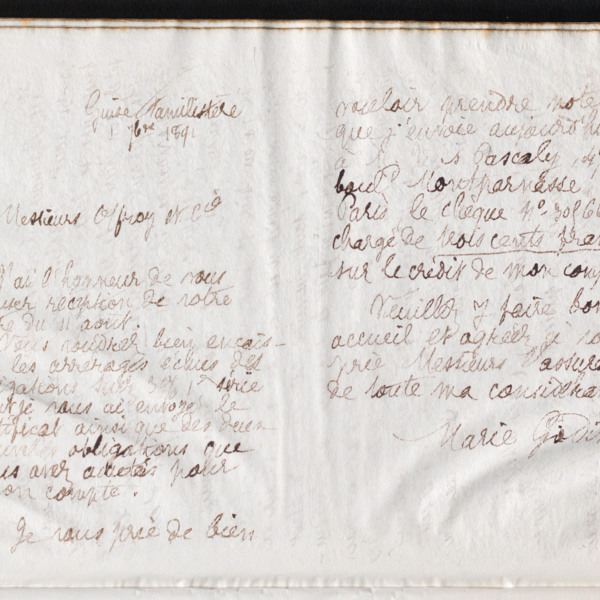 Guise Familistère
7bre 1891
Messieurs Offroy et Cie
J'ai l'honneur de vous
user reception de votre
re du 11 août.
Vous voudrez bien encais-
les arrerages échus des
igations Suez 1re série
t je vous ai envoyé le
tificat ainsi que des deux
obligations que
us avez achetés pour
on compte.
Je vous prie de bien
vouloir prendre note
que j'envoie aujourd'hu
à Pascaly,
boul.d Montparnasse
Paris le chèque No. 3056
chargé de trois cents fran
sur le crédit de mon comp
Veuillez y faire bon
accueil et agréer je vo
prie Messieurs l'assura
de toute ma considéra
Marie Godin